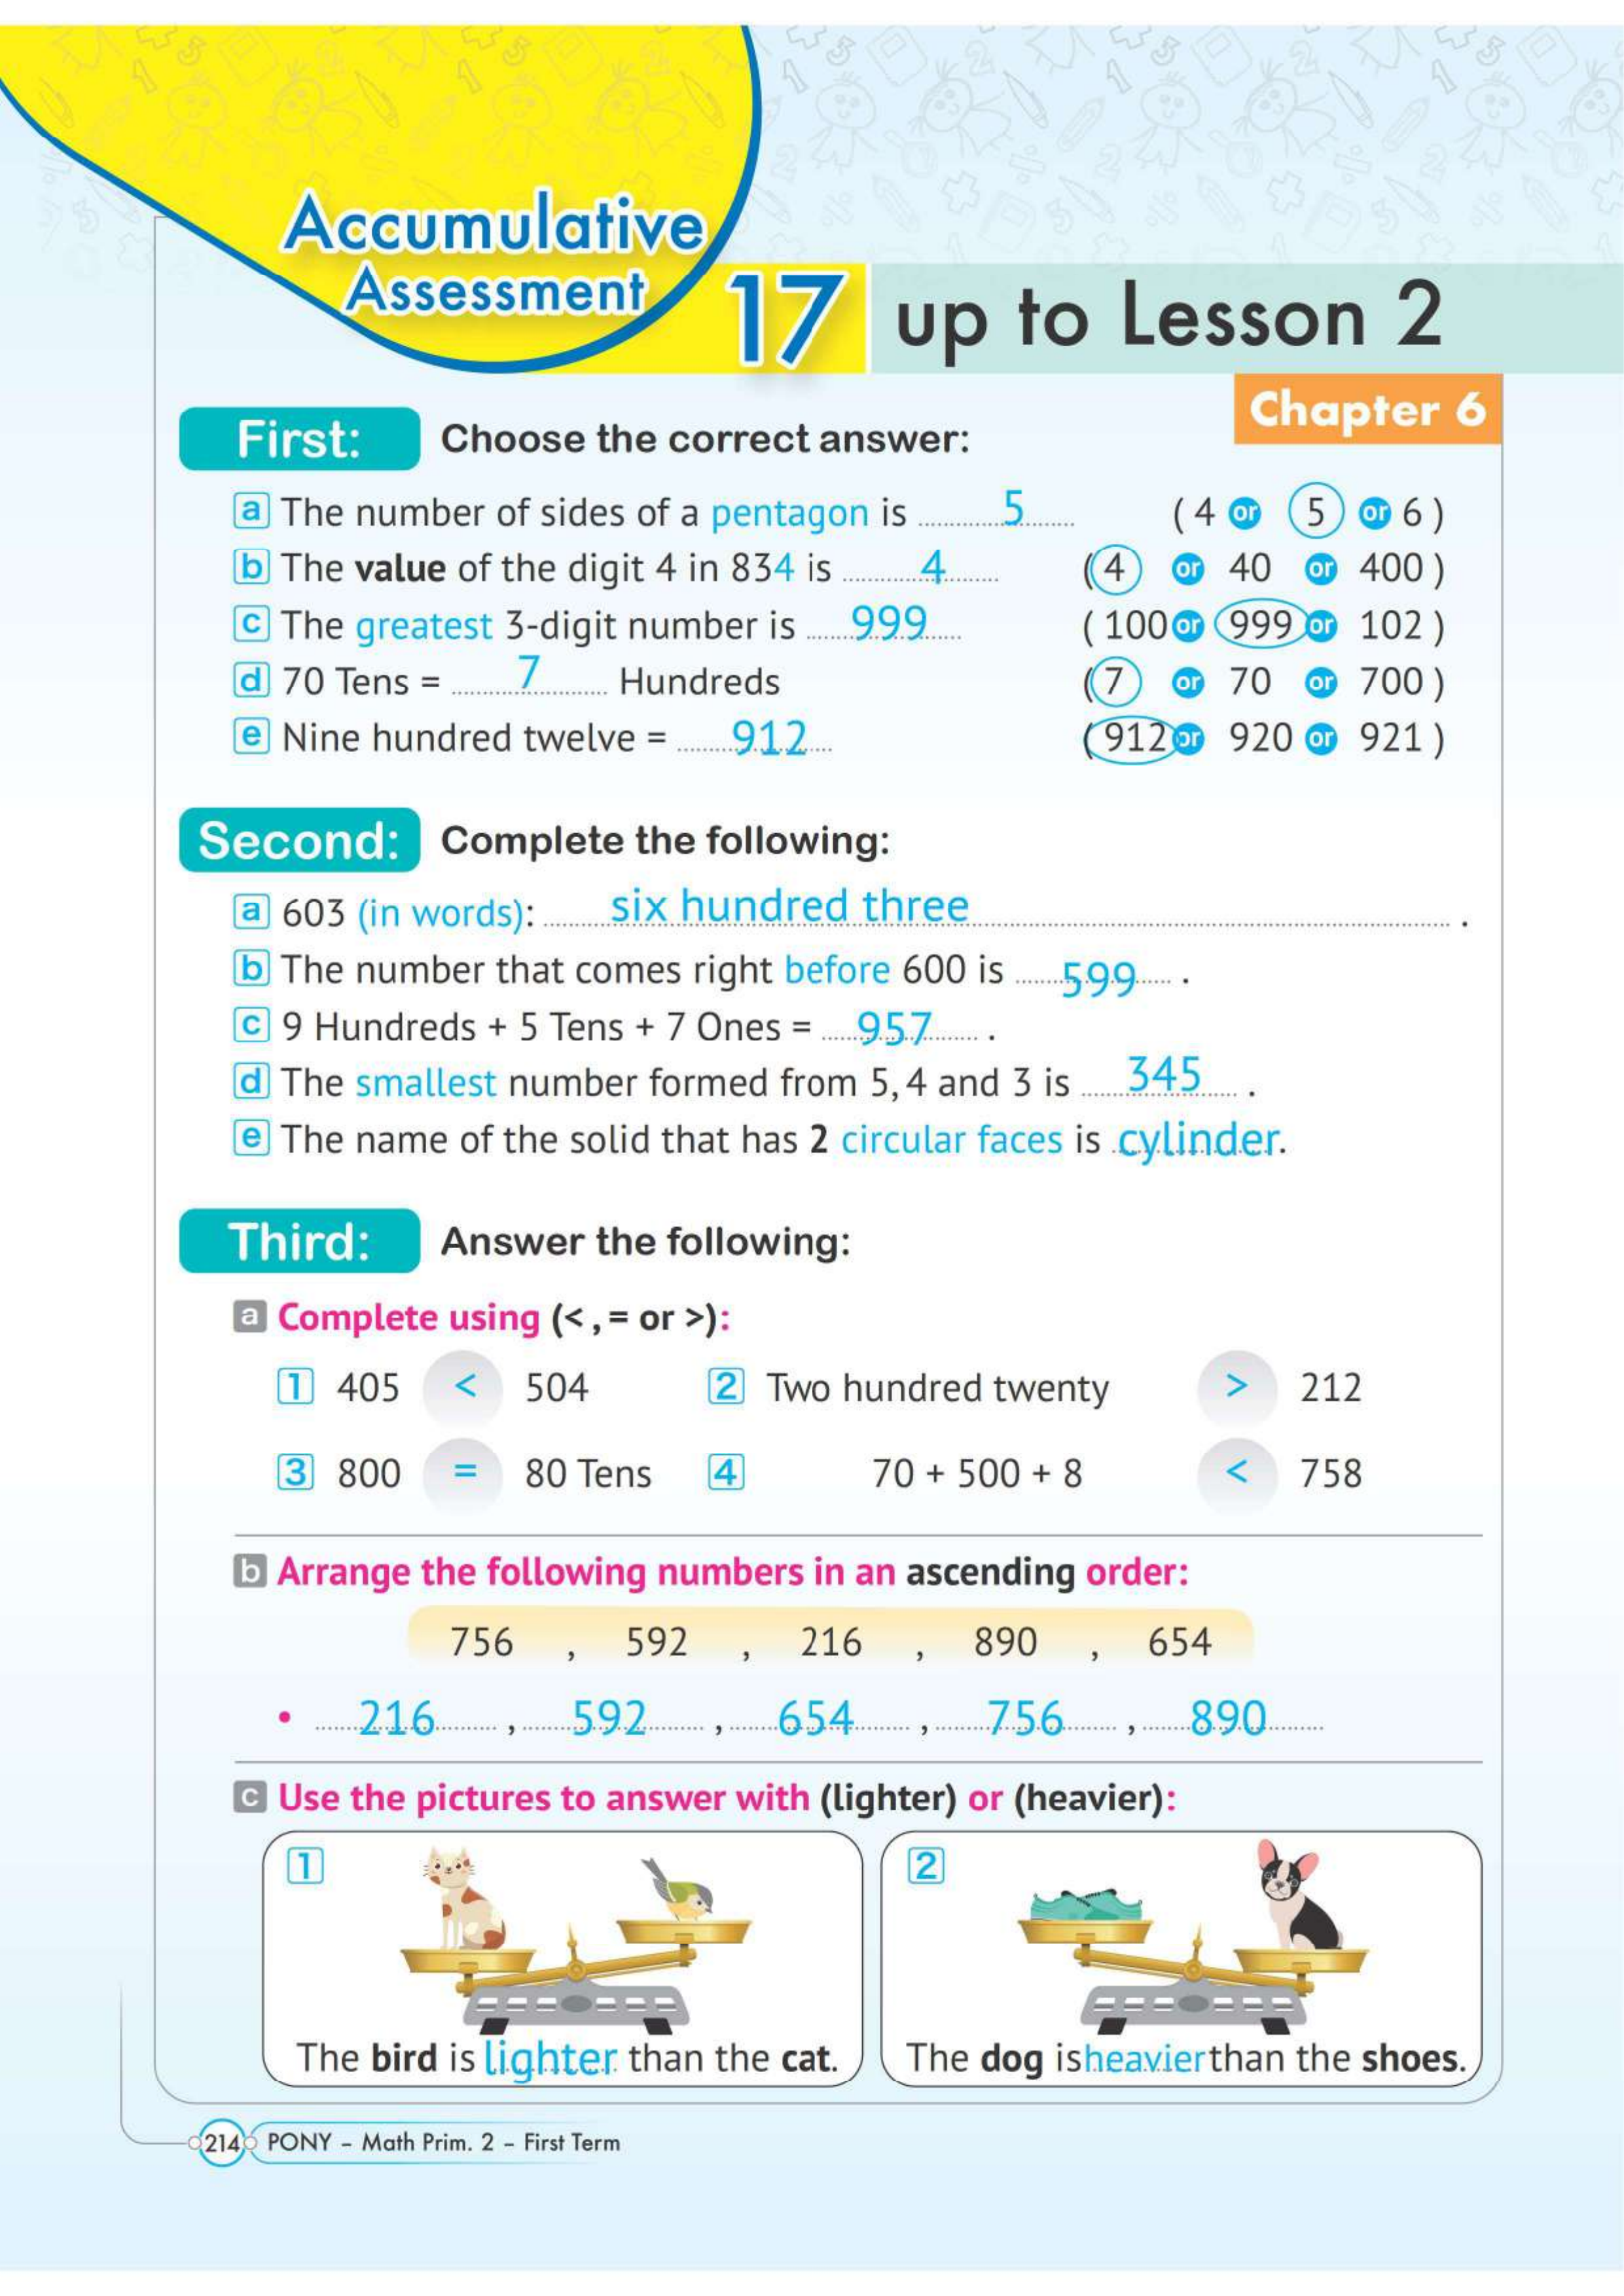 Accumulative
Assessment 17 up to Lesson 2
Chapter 6
First: Choose the correct answer:
a The number of sides of a pentagon is ..........5...... (4 or 5 or 6)
b The value of the digit 4 in 834 is ..........4...... (4 or 40 or 400)
c The greatest 3-digit number is ......999.... (100 or 999 or 102)
d 70 Tens = ........7......... Hundreds (7 or 70 or 700)
e Nine hundred twelve = .......912... (912 or 920 or 921)
Second: Complete the following:
a 603 (in words): ........six hundred three........................................ .
b The number that comes right before 600 is ......599.... .
c 9 Hundreds + 5 Tens + 7 Ones = ....957..... .
d The smallest number formed from 5, 4 and 3 is .....345.... .
e The name of the solid that has 2 circular faces is cylinder.
Third: Answer the following:
a Complete using (< , = or >):
1 405 < 504 2 Two hundred twenty > 212
3 800 = 80 Tens 4 70 + 500 + 8 < 758
b Arrange the following numbers in an ascending order:
756 , 592 , 216 , 890 , 654
• .....216....... , ......592....... , ......654....... , .......756....... , ......890.......
c Use the pictures to answer with (lighter) or (heavier):
1 2
The bird is lighter than the cat. The dog is heavier than the shoes.
214 PONY – Math Prim. 2 – First Term